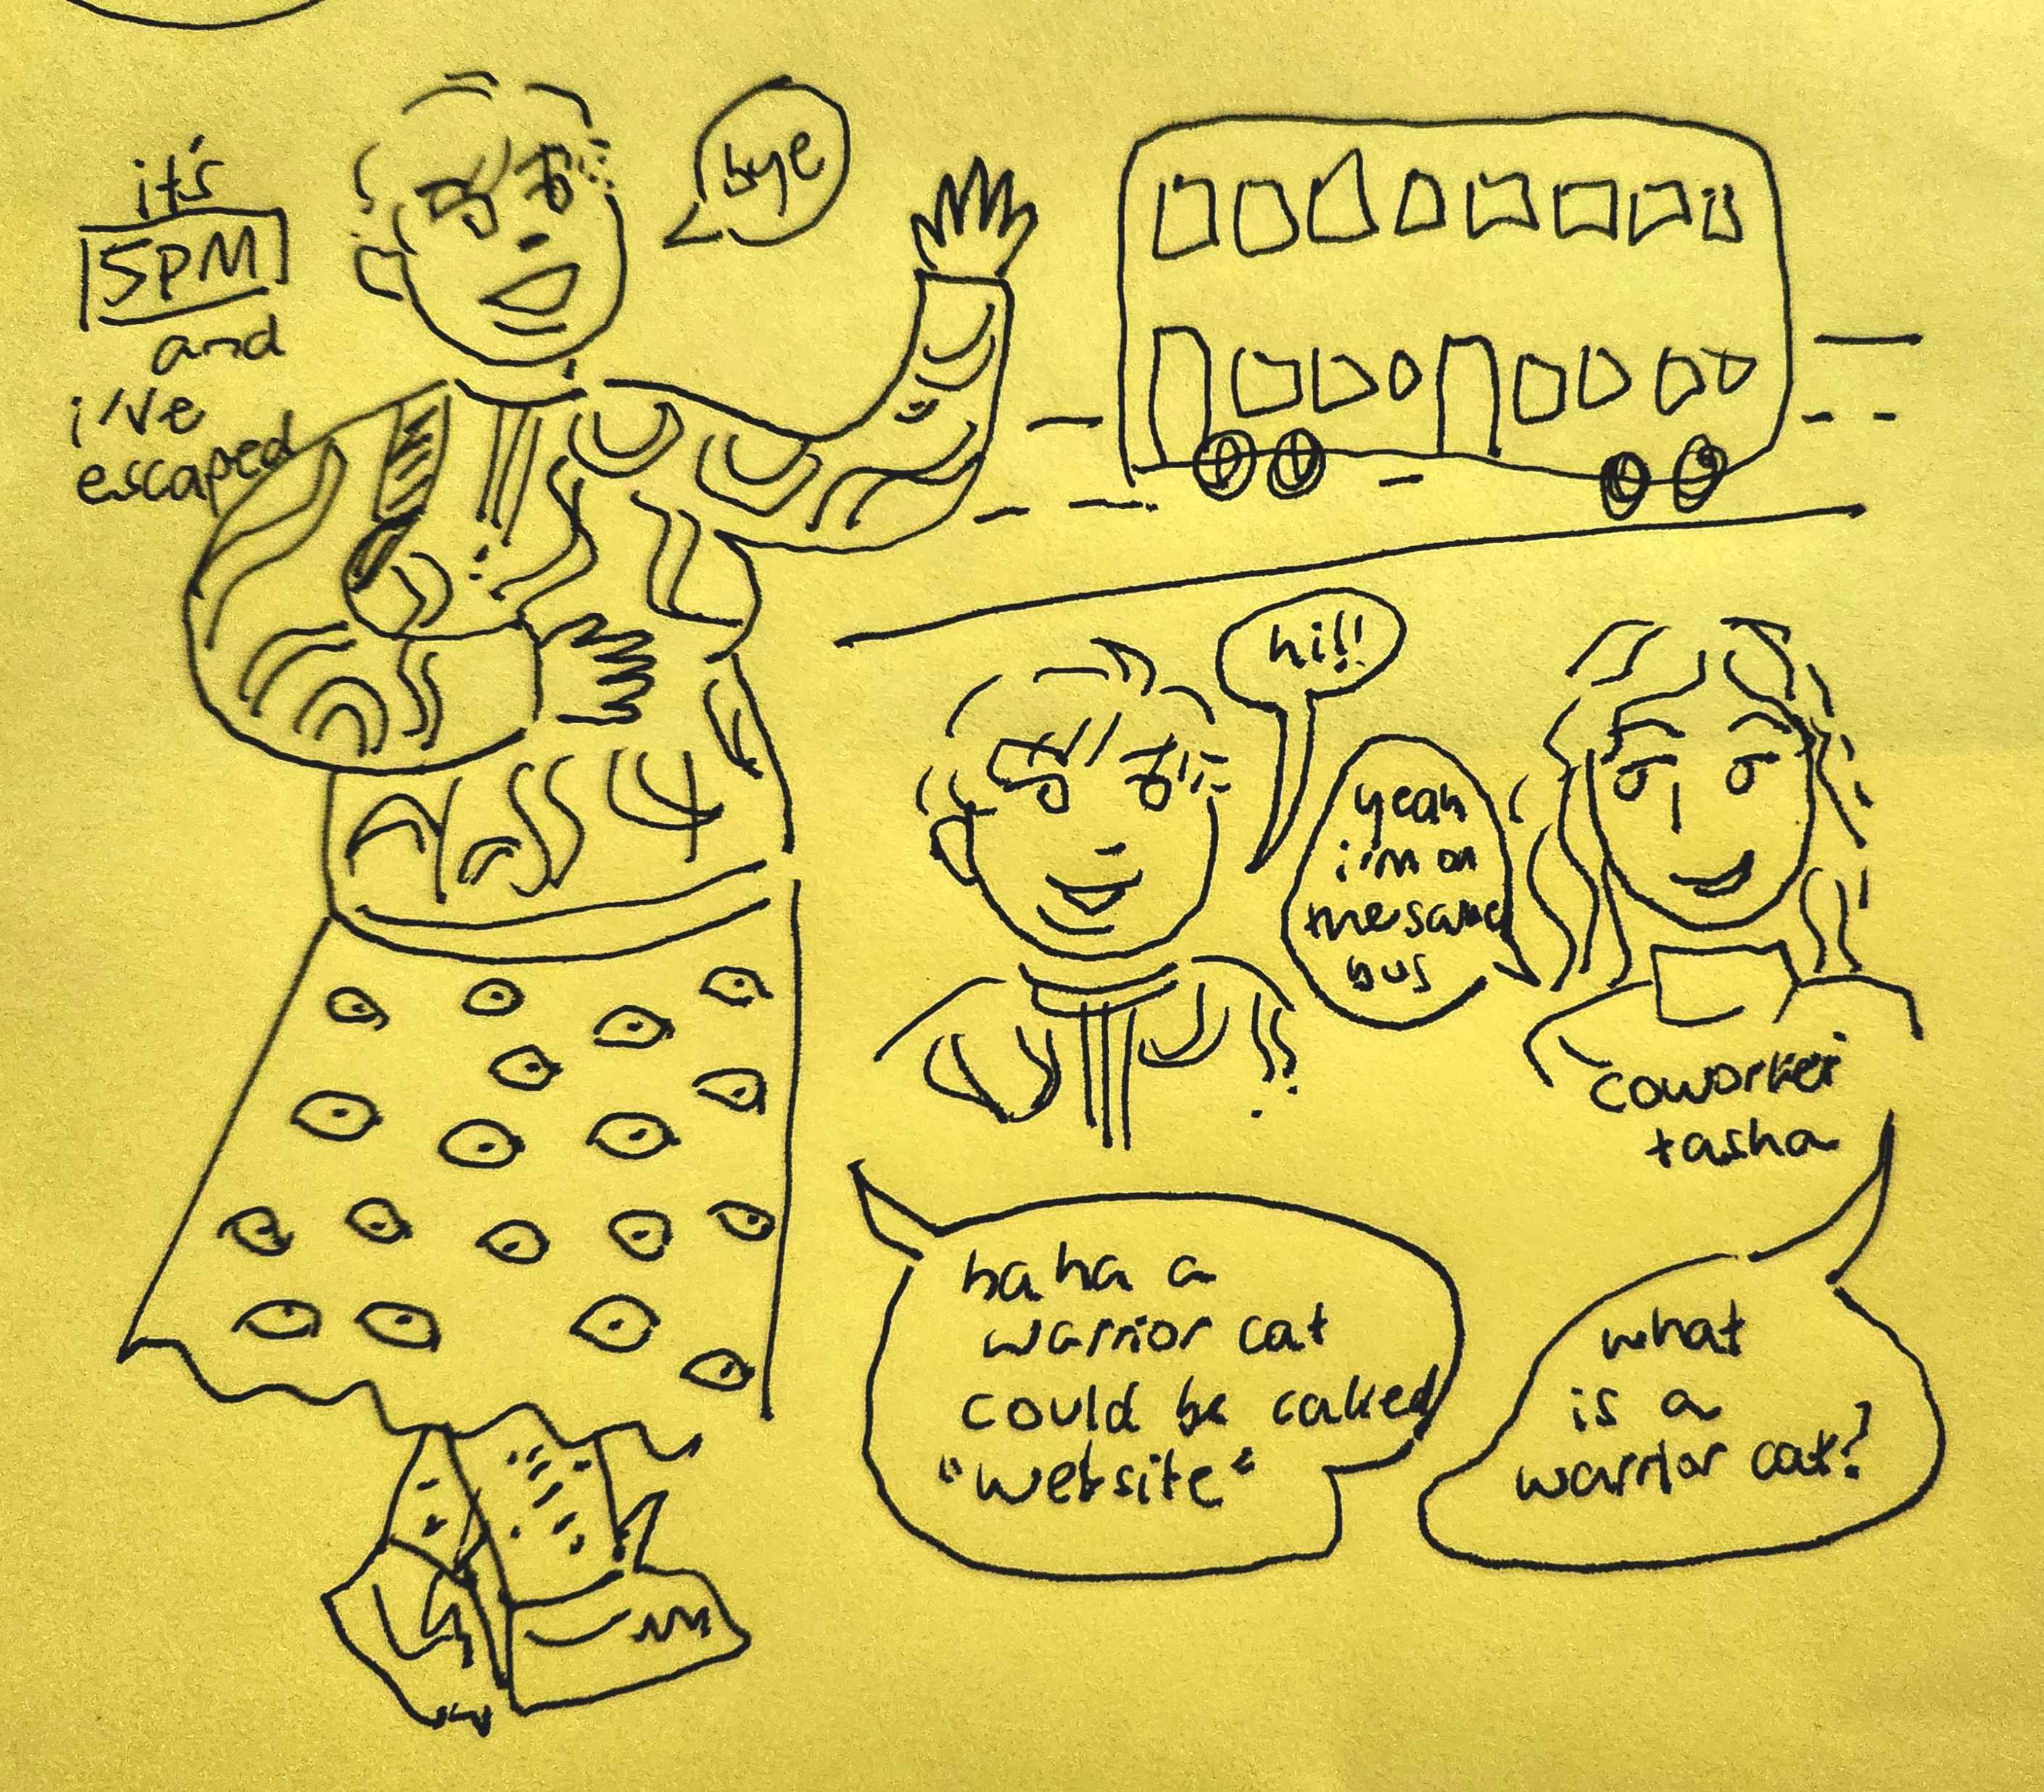 it's
5PM
and
i've
escaped
bye
hi!!
yeah
i'm on
the same
bus
coworker
tasha
haha a
warrior cat
could be called
"website"
what
is a
warrior cat?